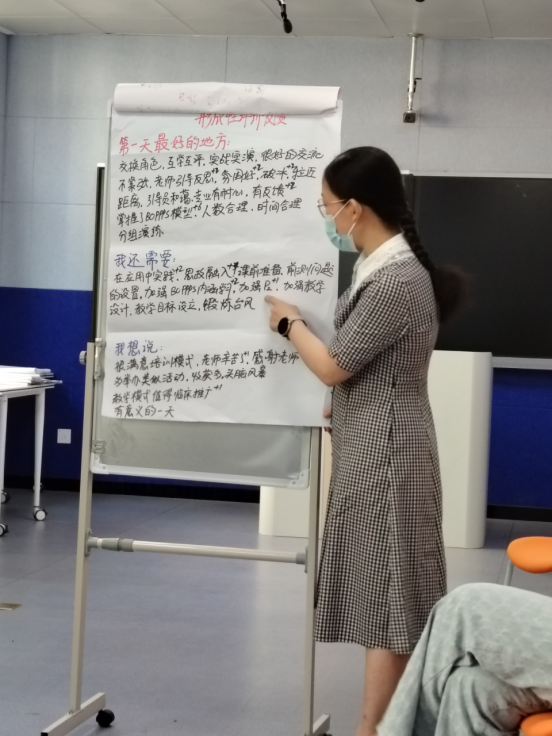 形成性评价反馈
第一天最好的地方:
交换角色，互学互评，实战实演，很好的交流
不紧张，老师引导反思+3，房间好+2，破冰+2拉近
距离，引导员和蔼，专业有耐心，有反馈+2
掌握了BOPPPS模型+6人数合理，时间合理
分组演练
我还需要:
在应用中实践+2 思政融入+4课前准备，前测问题
的设置，加强BOPPPS内涵学习+2，加强P2+1，加强教学
设计，教学目标设立，锻炼台风
我想说:
很满意培训模式，老师辛苦了，感谢老师
多举办类似活动，收获多，头脑风暴
教学模式值得临床推广+1
有意义的一天